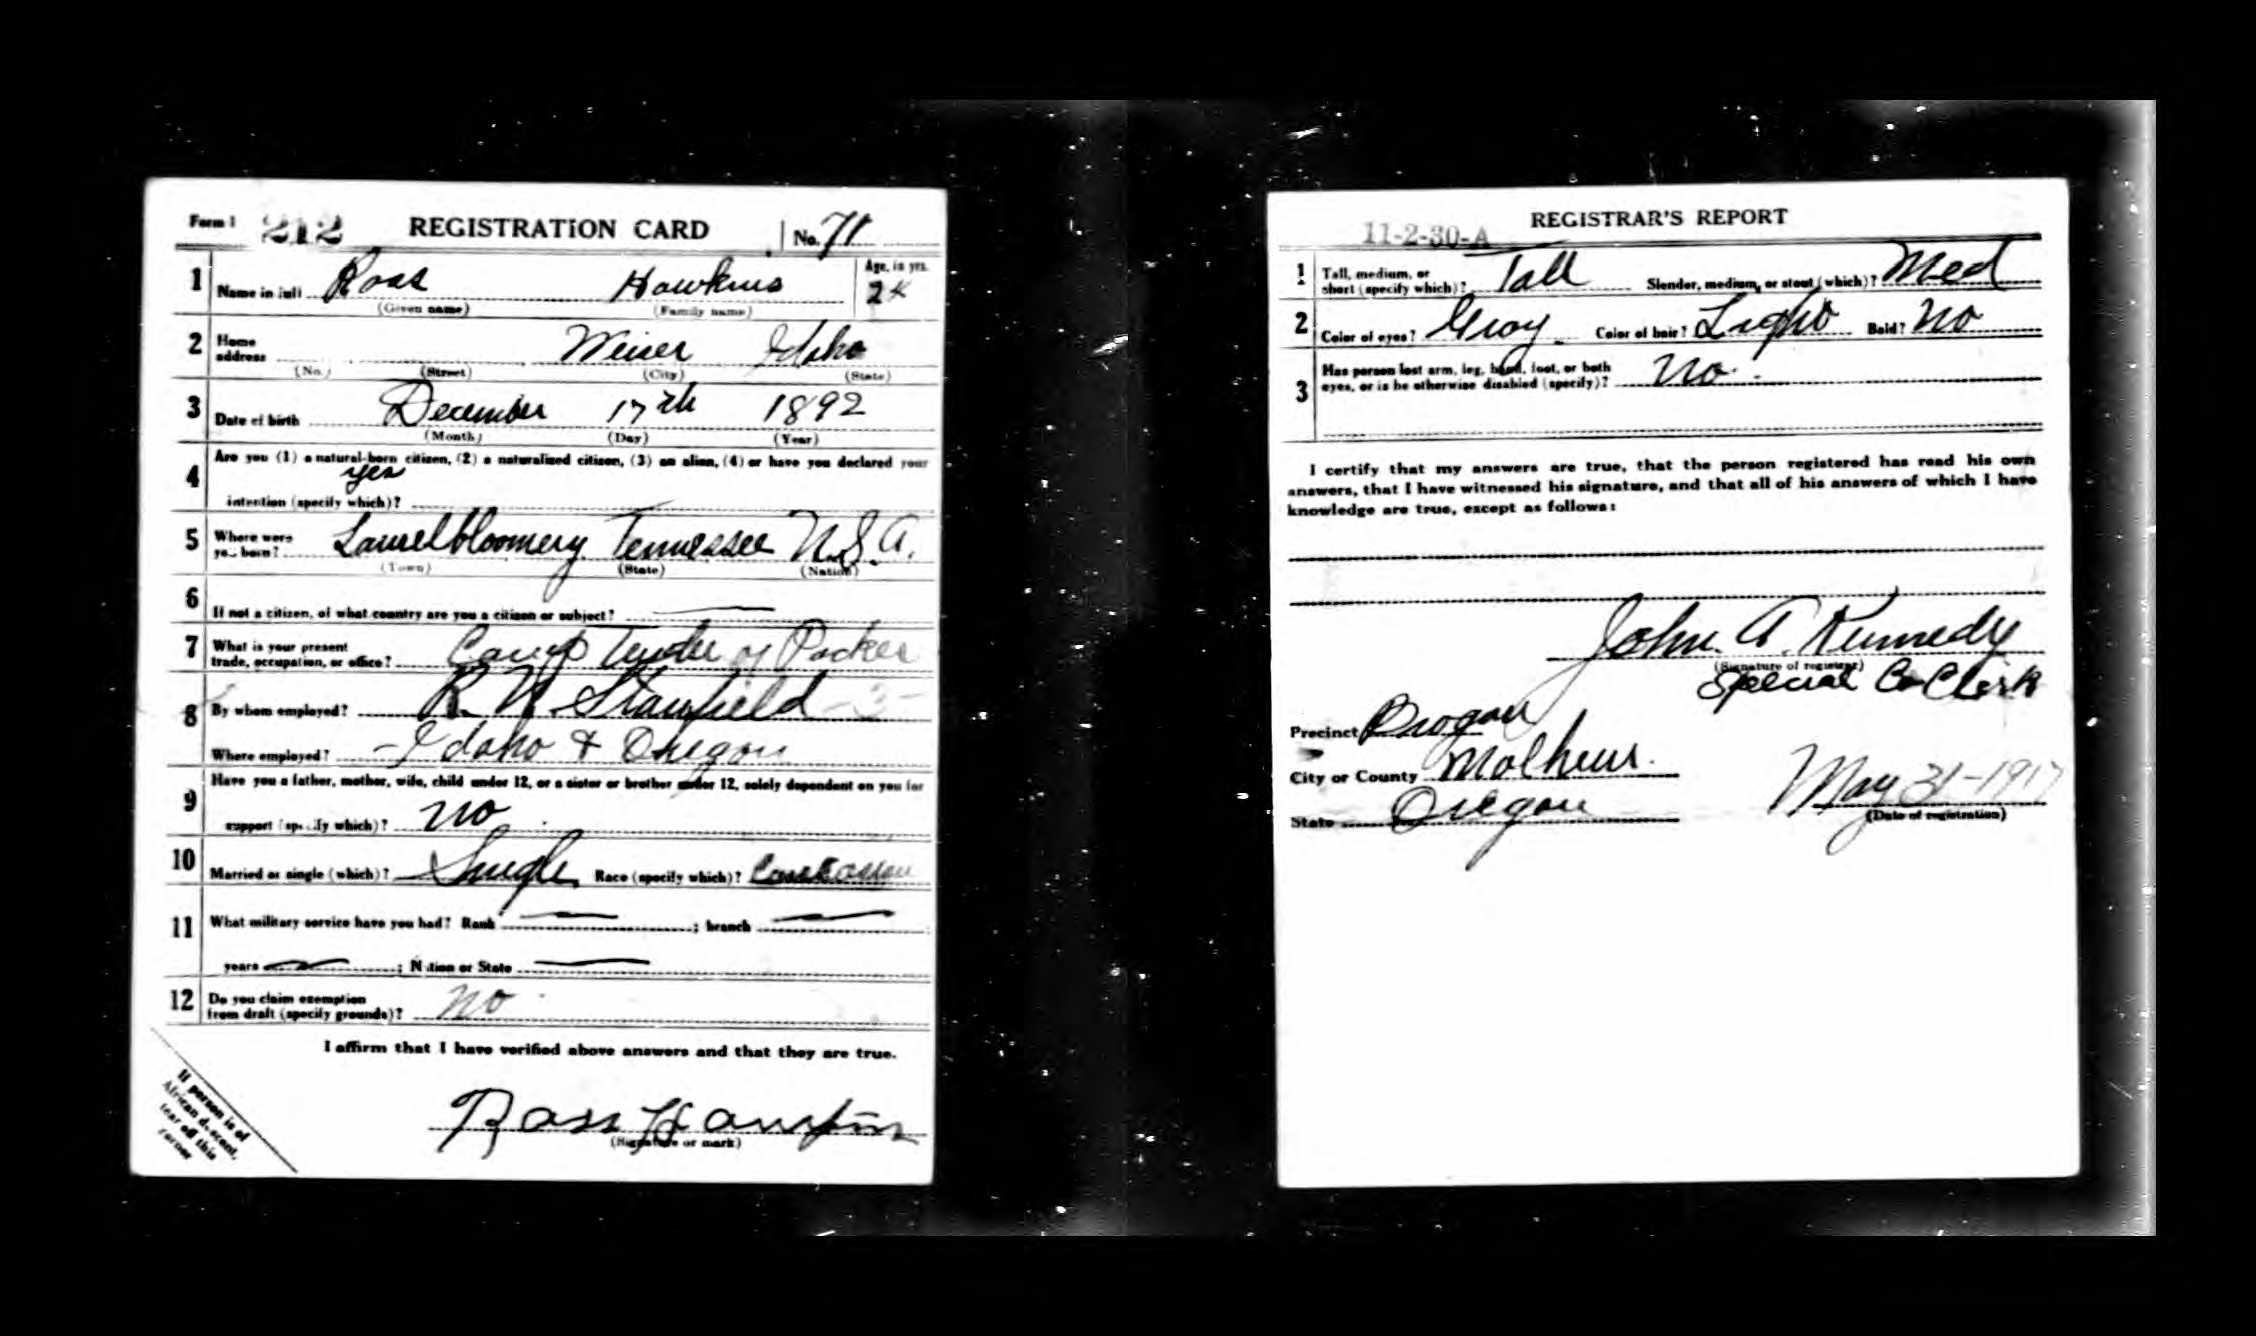 Form 1 212 REGISTRATION CARD No. 71
1 Name in full Ross Hawkins Age, in yrs. 24
(Given name) (Family name)
2 Home address Weiser Idaho
(No.) (Street) (City) (State)
3 Date of birth December 17th 1892
(Month) (Day) (Year)
4 Are you (1) a natural-born citizen, (2) a naturalized citizen, (3) an alien, (4) or have you declared your
yes
intention (specify which)?
5 Where were you born? Laurelbloomery Tennessee U.S.A.
(Town) (State) (Nation)
6 If not a citizen, of what country are you a citizen or subject?
7 What is your present
trade, occupation, or office? Camp Tender or Packer
8 By whom employed? R. N. Stanfield
Where employed? Idaho & Oregon
9 Have you a father, mother, wife, child under 12, or a sister or brother under 12, solely dependent on you for
support (specify which)? No
10 Married or single (which)? Single Race (specify which)? Caucasian
11 What military service have you had? Rank ; branch
years ; Nation or State
12 Do you claim exemption
from draft (specify grounds)? No
I affirm that I have verified above answers and that they are true.
Ross Hawkins
(Signature or mark)
If person is of
African descent,
tear off this
corner
11-2-30-A REGISTRAR'S REPORT
1 Tall, medium, or
short (specify which)? Tall Slender, medium, or stout (which)? Med
2 Color of eyes? Gray Color of hair? Light Bald? No
3 Has person lost arm, leg, hand, foot, or both
eyes, or is he otherwise disabled (specify)? No.
I certify that my answers are true, that the person registered has read his own
answers, that I have witnessed his signature, and that all of his answers of which I have
knowledge are true, except as follows:
John. A. Kennedy
(Signature of registrar)
Special Co Clerk
Precinct Brogan
City or County Malheur.
State Oregon
May 31-1917
(Date of registration)